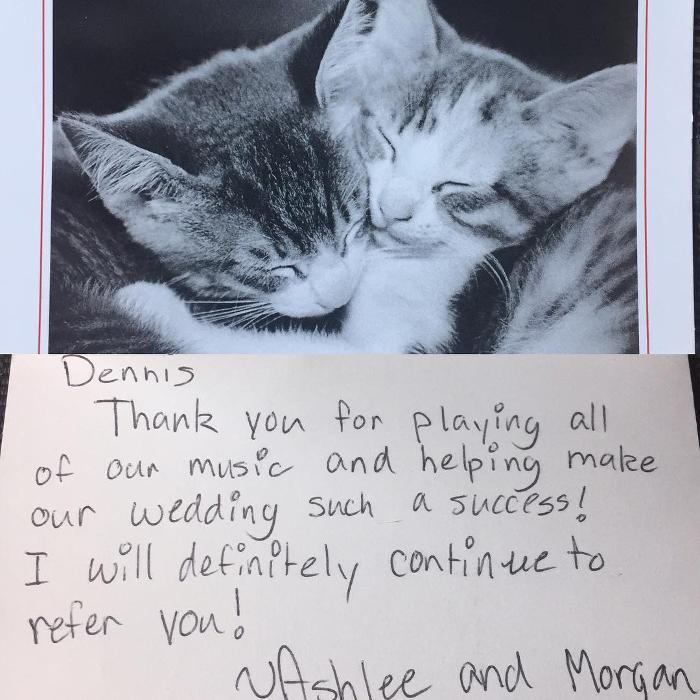 Dennis
Thank you for playing all
of our music and helping make
our wedding such a success!
I will definitely continue to
refer you!
~Ashlee and Morgan